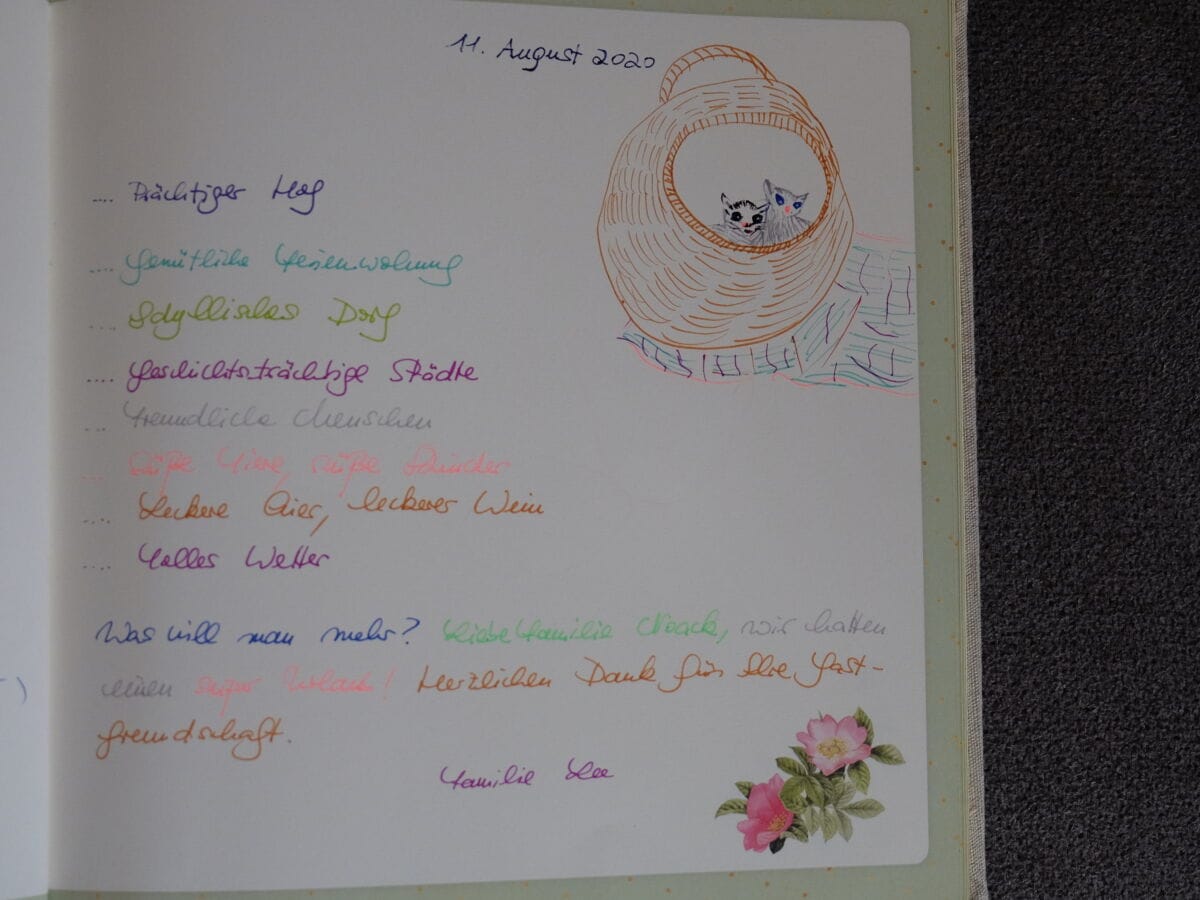 11. August 2020
.... Prächtiger Hof
.... Gemütliche Ferienwohnung
.... Idyllisches Dorf
.... Geschichtsträchtige Städte
... Freundliche Menschen
.... Süße Tiere, süße Kinder
.... Leckere Eier, leckerer Wein
.... Tolles Wetter
Was will man mehr? Liebe Familie Noack, wir hatten
einen super Urlaub! Herzlichen Dank für Ihre Gast-
freundschaft.
Familie
)